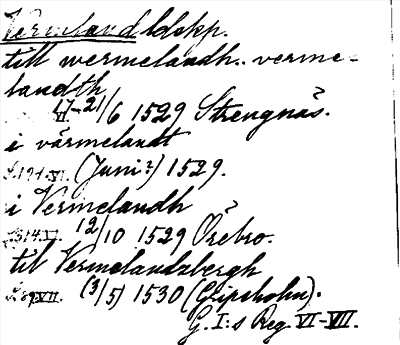 Vermeland ldskp.
till wermelandh.. verme-
landth
17-21/6 1529 Strengnäs.
i värmelandt
S.191.VI. (Juni?) 1529.
i Vermelandh
S.314.VI. 12/10 1529 Örebro.
till Vermelandzbergh
S.89.VII. (3/5) 1530 (Gripsholm).
G. I:s Reg. VI-VII.